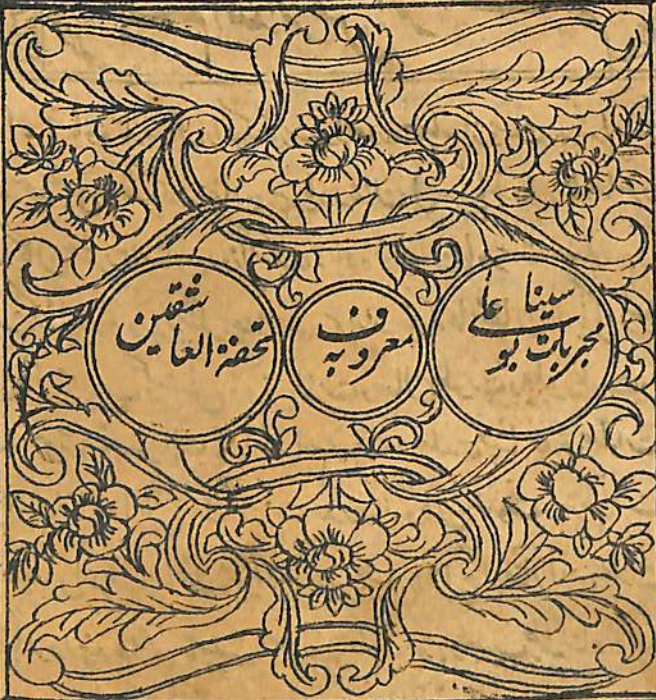 مجربات بوعلی سینا
معروف به
تحفة العاشقین